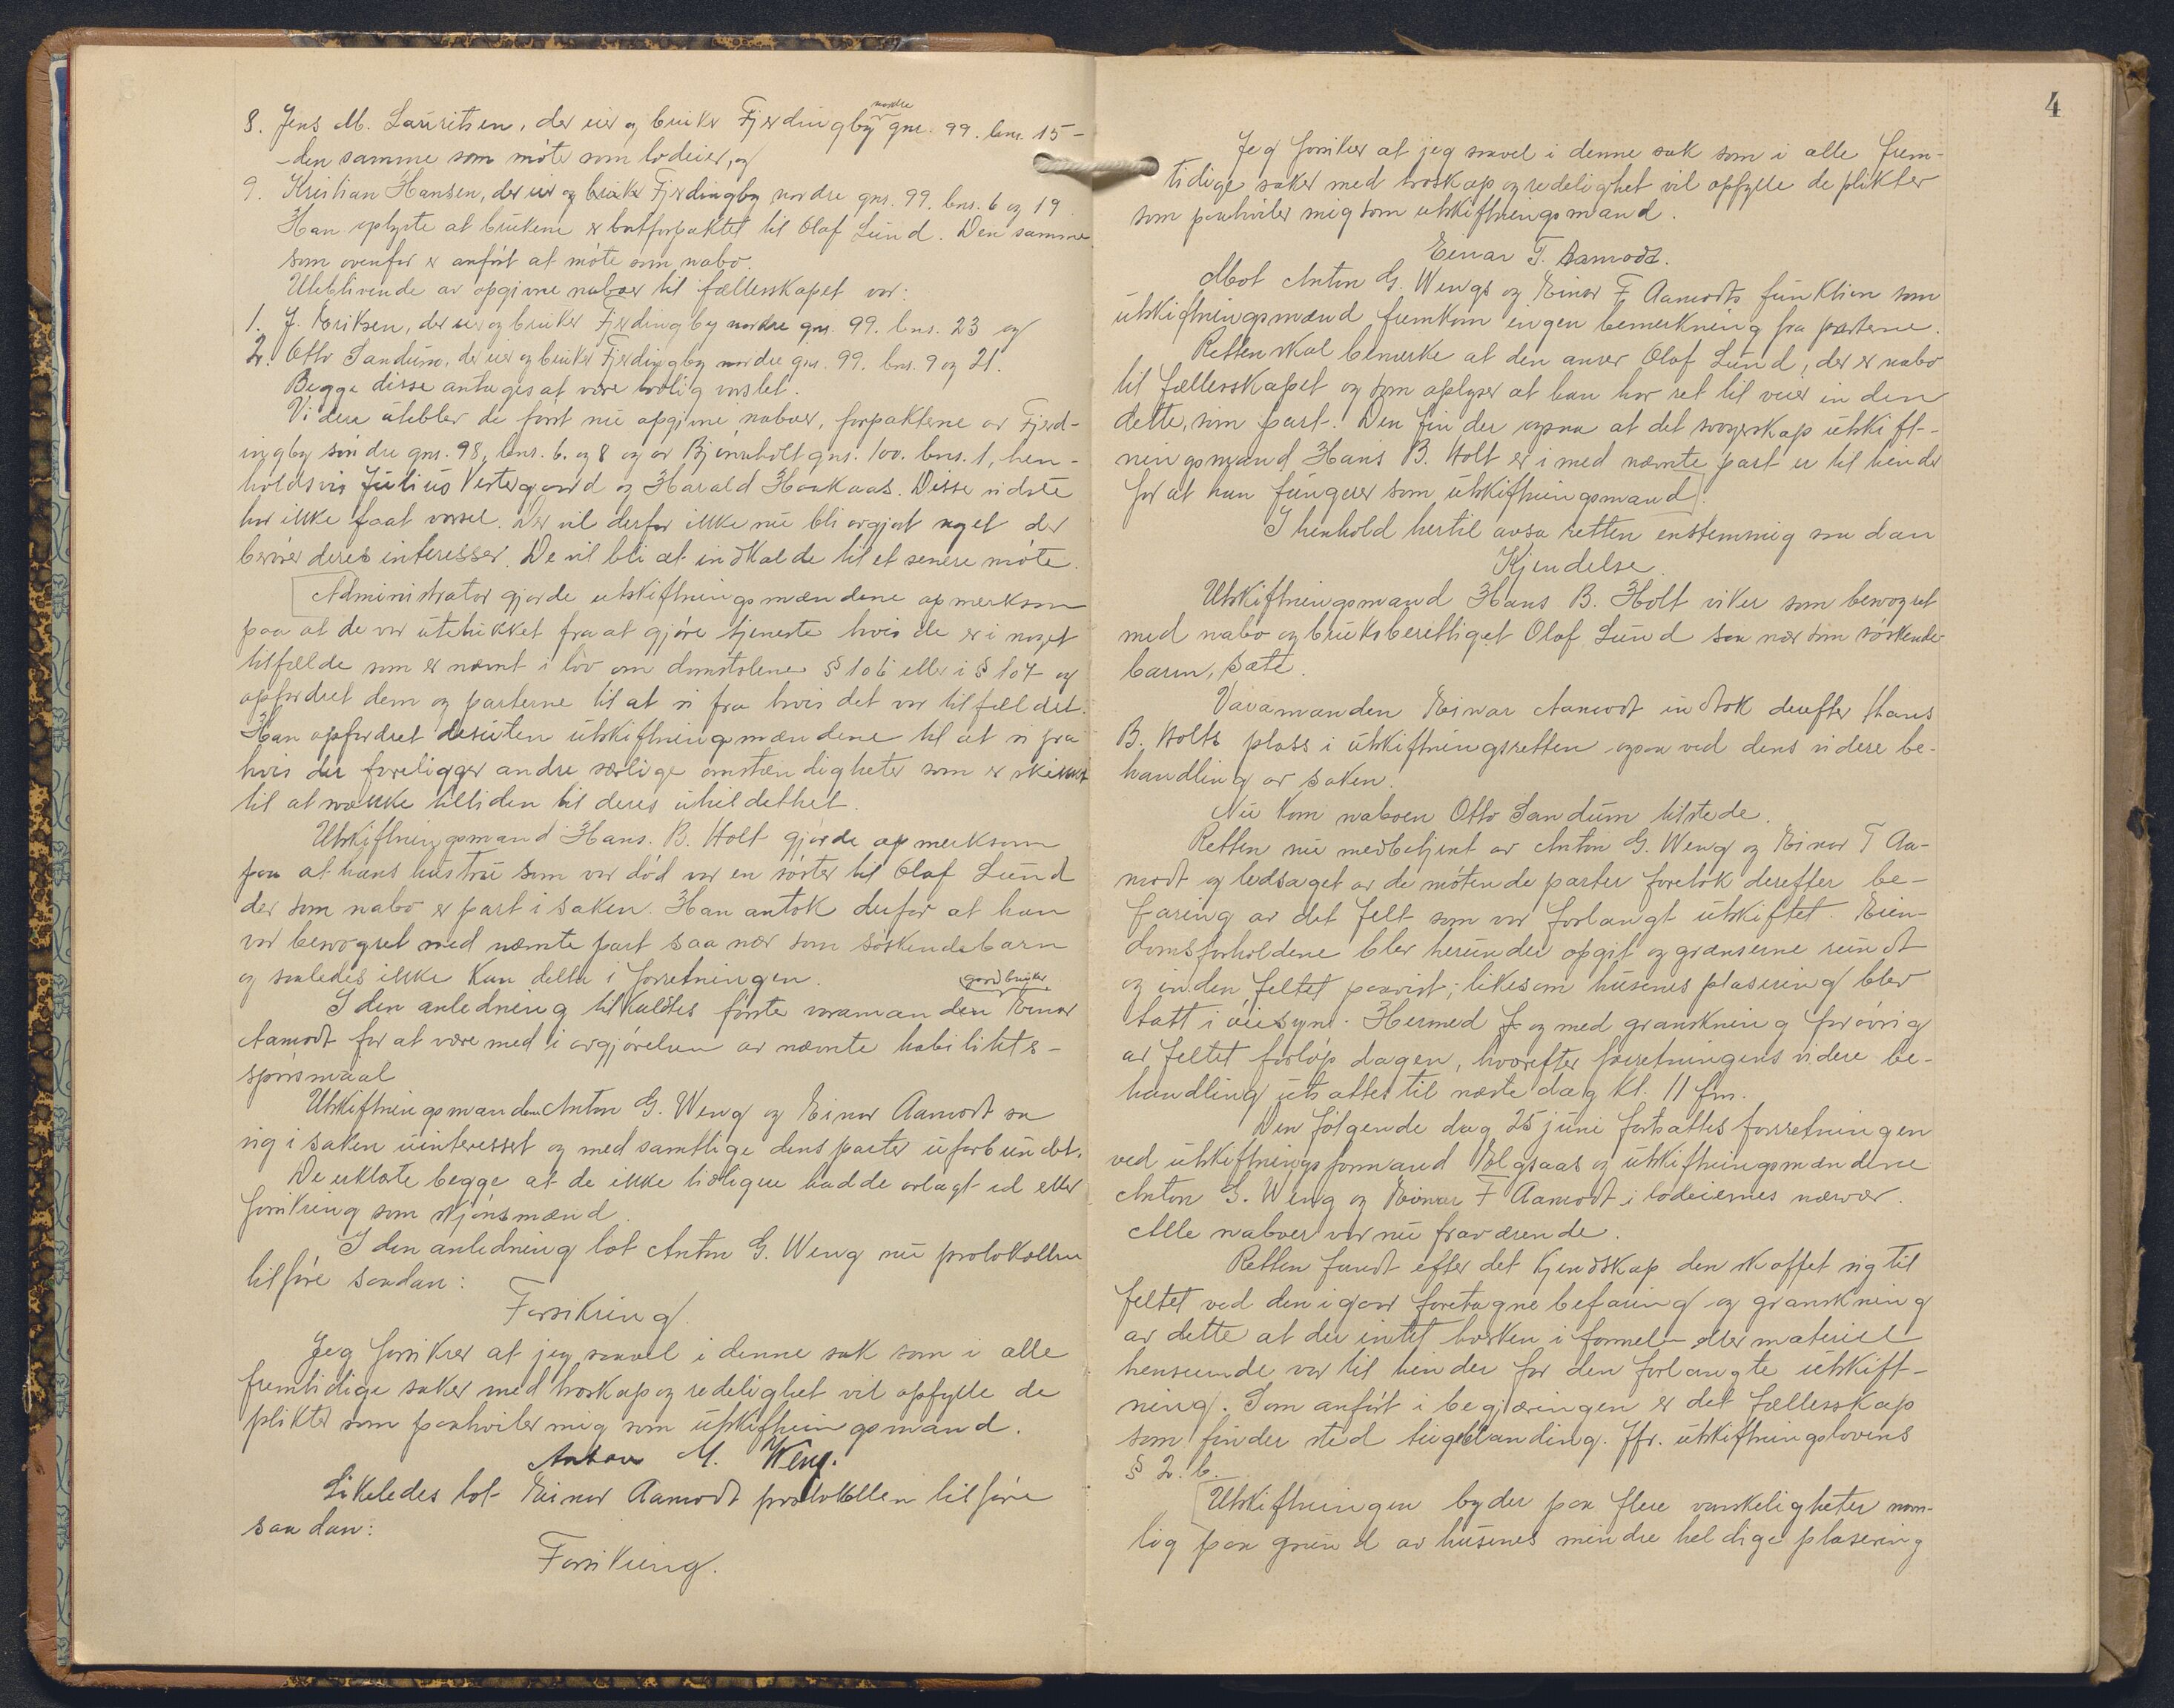 8. Jens M. Lauritsen, der eier og bruker Fjerdingby nordre gnr. 99. bnr. 15 -
- den samme som møter som lodeier, og
9. Kristian Hansen, der eier og bruker Fjerdingby nordre gnr. 99. bnr. 6 og 19
Han oplyste at brukene er bortforpaktet til Olaf Lund. Den samme
som ovenfor er anført at møte som nabo.
Uteblivende av opgivne naboer til fællesskapet var:
1. J. Eriksen, der eier og bruker Fjerdingby nordre gnr. 99. bnr. 23 og
2. Otto Sandum, der eier og bruker Fjerdingby nordre gnr. 99. bnr. 9 og 21.
Begge disse antages at være lovlig varslet.
Videre utebler de først nu opgivne naboer, forpakterne av Fjerd-
ingby søndre gnr. 98, bnr. 6. og 8 og av Bjønnholt gnr. 100. bnr. 1, hen-
holdsvis Julius Vestergaard og Harald Haakaas. Disse sidste
har ikke faat varsel. Der vil derfor ikke nu bli avgjort noget der
berører deres interesser. De vil bli at indkalde til et senere møte.
Administrator gjorde utskiftningsmændene opmerksom
paa at de var utelukket fra at gjøre tjeneste hvis de er i noget
tilfælde som er nævnt i lov om domstolene § 106 eller i § 107 og
opfordret dem og parterne til at si fra hvis det var tilfældet.
Han opfordret desuten utskiftningsmændene til at si fra
hvis der foreligger andre særlige omstændigheter som er skikket
til at svække tilliden til deres uhildethet.
Utskiftningsmand Hans. B. Holt gjorde opmerksom
paa at hans hustru som var død var en søster til Olaf Lund
der som nabo er part i saken. Han antok derfor at han
var besvogret med nævnte part saa nær som søskendebarn
og saaledes ikke kan delta i forretningen.
I den anledning tilkaldtes første varamanden gaardbruker Einar
Aamodt for at være med i avgjørelsen av nævnte habilitets-
spørsmaal
Utskiftningsmændene Anton G. Weng og Einar Aamodt sa
sig i saken uinteressert og med samtlige dens parter uforbundet.
De erklærte begge at de ikke tidligere hadde avlagt ed eller
forsikring som skjønsmænd.
I den anledning lot Anton G. Weng nu protokollen
tilføre saadan:
Forsikring.
Jeg forsikrer at jeg saavel i denne sak som i alle
fremtidige saker med troskap og redelighet vil opfylle de
plikter som paahviler mig som utskiftningsmand.
Anton G. Weng.
Likeledes lot Einar Aamodt protokollen tilføre
saadan:
Forsikring.
4
Jeg forsikrer at jeg saavel i denne sak som i alle frem-
tidige saker med troskap og redelighet vil opfylle de plikter
som paahviler mig som utskiftningsmand.
Einar F. Aamodt.
Mot Anton G. Wengs og Einar F Aamodts funktion som
utskiftningsmænd fremkom ingen bemerkning fra parterne.
Retten skal bemerke at den anser Olaf Lund, der er nabo
til fællesskapet og som oplyser at han har ret til veier inden
dette, som part. Den finder ogsaa at det svogerskap utskift-
ningsmand Hans B. Holt er i med nævnte part er til hinder
for at han fungerer som utskiftningsmand.
I henhold hertil avsa retten enstemmig saadan
Kjendelse.
Utskiftningsmand Hans B. Holt viker som besvogret
med nabo og bruksberettiget Olaf Lund saa nær som søskende-
barn, sæte.
Varamanden Einar Aamodt indtok derefter Hans
B. Holts plass i utskiftningsretten ogsaa ved dens videre be-
handling av saken.
Nu kom naboen Otto Sandum tilstede.
Retten nu medbetjent av Anton G. Weng og Einar F Aa-
modt og ledsaget av de møtende parter foretok derefter be-
faring av det felt som var forlangt utskiftet. Eien-
domsforholdene blev herunder opgit og grænserne rundt
og inden feltet paavist; likesom husenes plasering blev
tatt i øiesyn. Hermed og med granskning forøvrig
av feltet forløp dagen, hvorefter forretningens videre be-
handling utsattes til næste dag kl. 11 fm.
Den følgende dag 25 juni fortsattes forretningen
ved utskiftningsformand Elgsaas og utskiftningsmændene
Anton G. Weng og Einar F Aamodt i lodeiernes nærvær.
Alle naboer var nu fraværende.
Retten fandt efter det kjendskap den skaffet sig til
feltet ved den igaar foretagne befaring og granskning
av dette at der intet hverken i formel eller materiel
henseende var til hinder for den forlangte utskift-
ning. Som anført i begjæringen er det fællesskap
som finder sted teigblanding. Jfr. utskiftningslovens
§ 2. b.
Utskiftningen byder paa flere vanskeligheter nem-
lig paa grund av husenes mindre heldige plasering